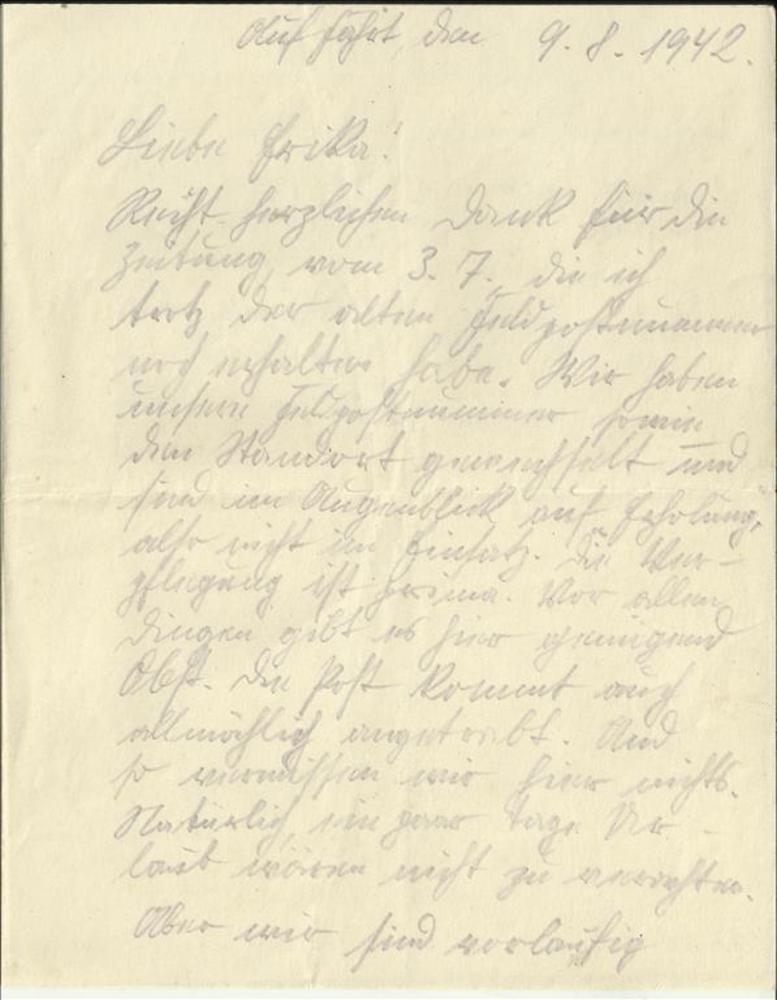 Auf Fahrt, den 9. 8. 1942.
Liebe Erika!
Recht herzlichen Dank für die
Zeitung vom 3. 7., die ich
trotz der alten Feldpostnummer
noch erhalten habe. Wir haben
unsere Feldpostnummer sowie
den Standort gewechselt und
sind im Augenblick auf Erholung,
also nicht im Einsatz. Die Ver-
pflegung ist prima. Vor allen
Dingen gibt es hier genügend
Obst. Die Post kommt auch
allmählich angetrabt. Und
so vermissen wir hier nichts.
Natürlich, ein paar Tage Ur-
laub wären nicht zu verachten.
Aber wir sind vorläufig